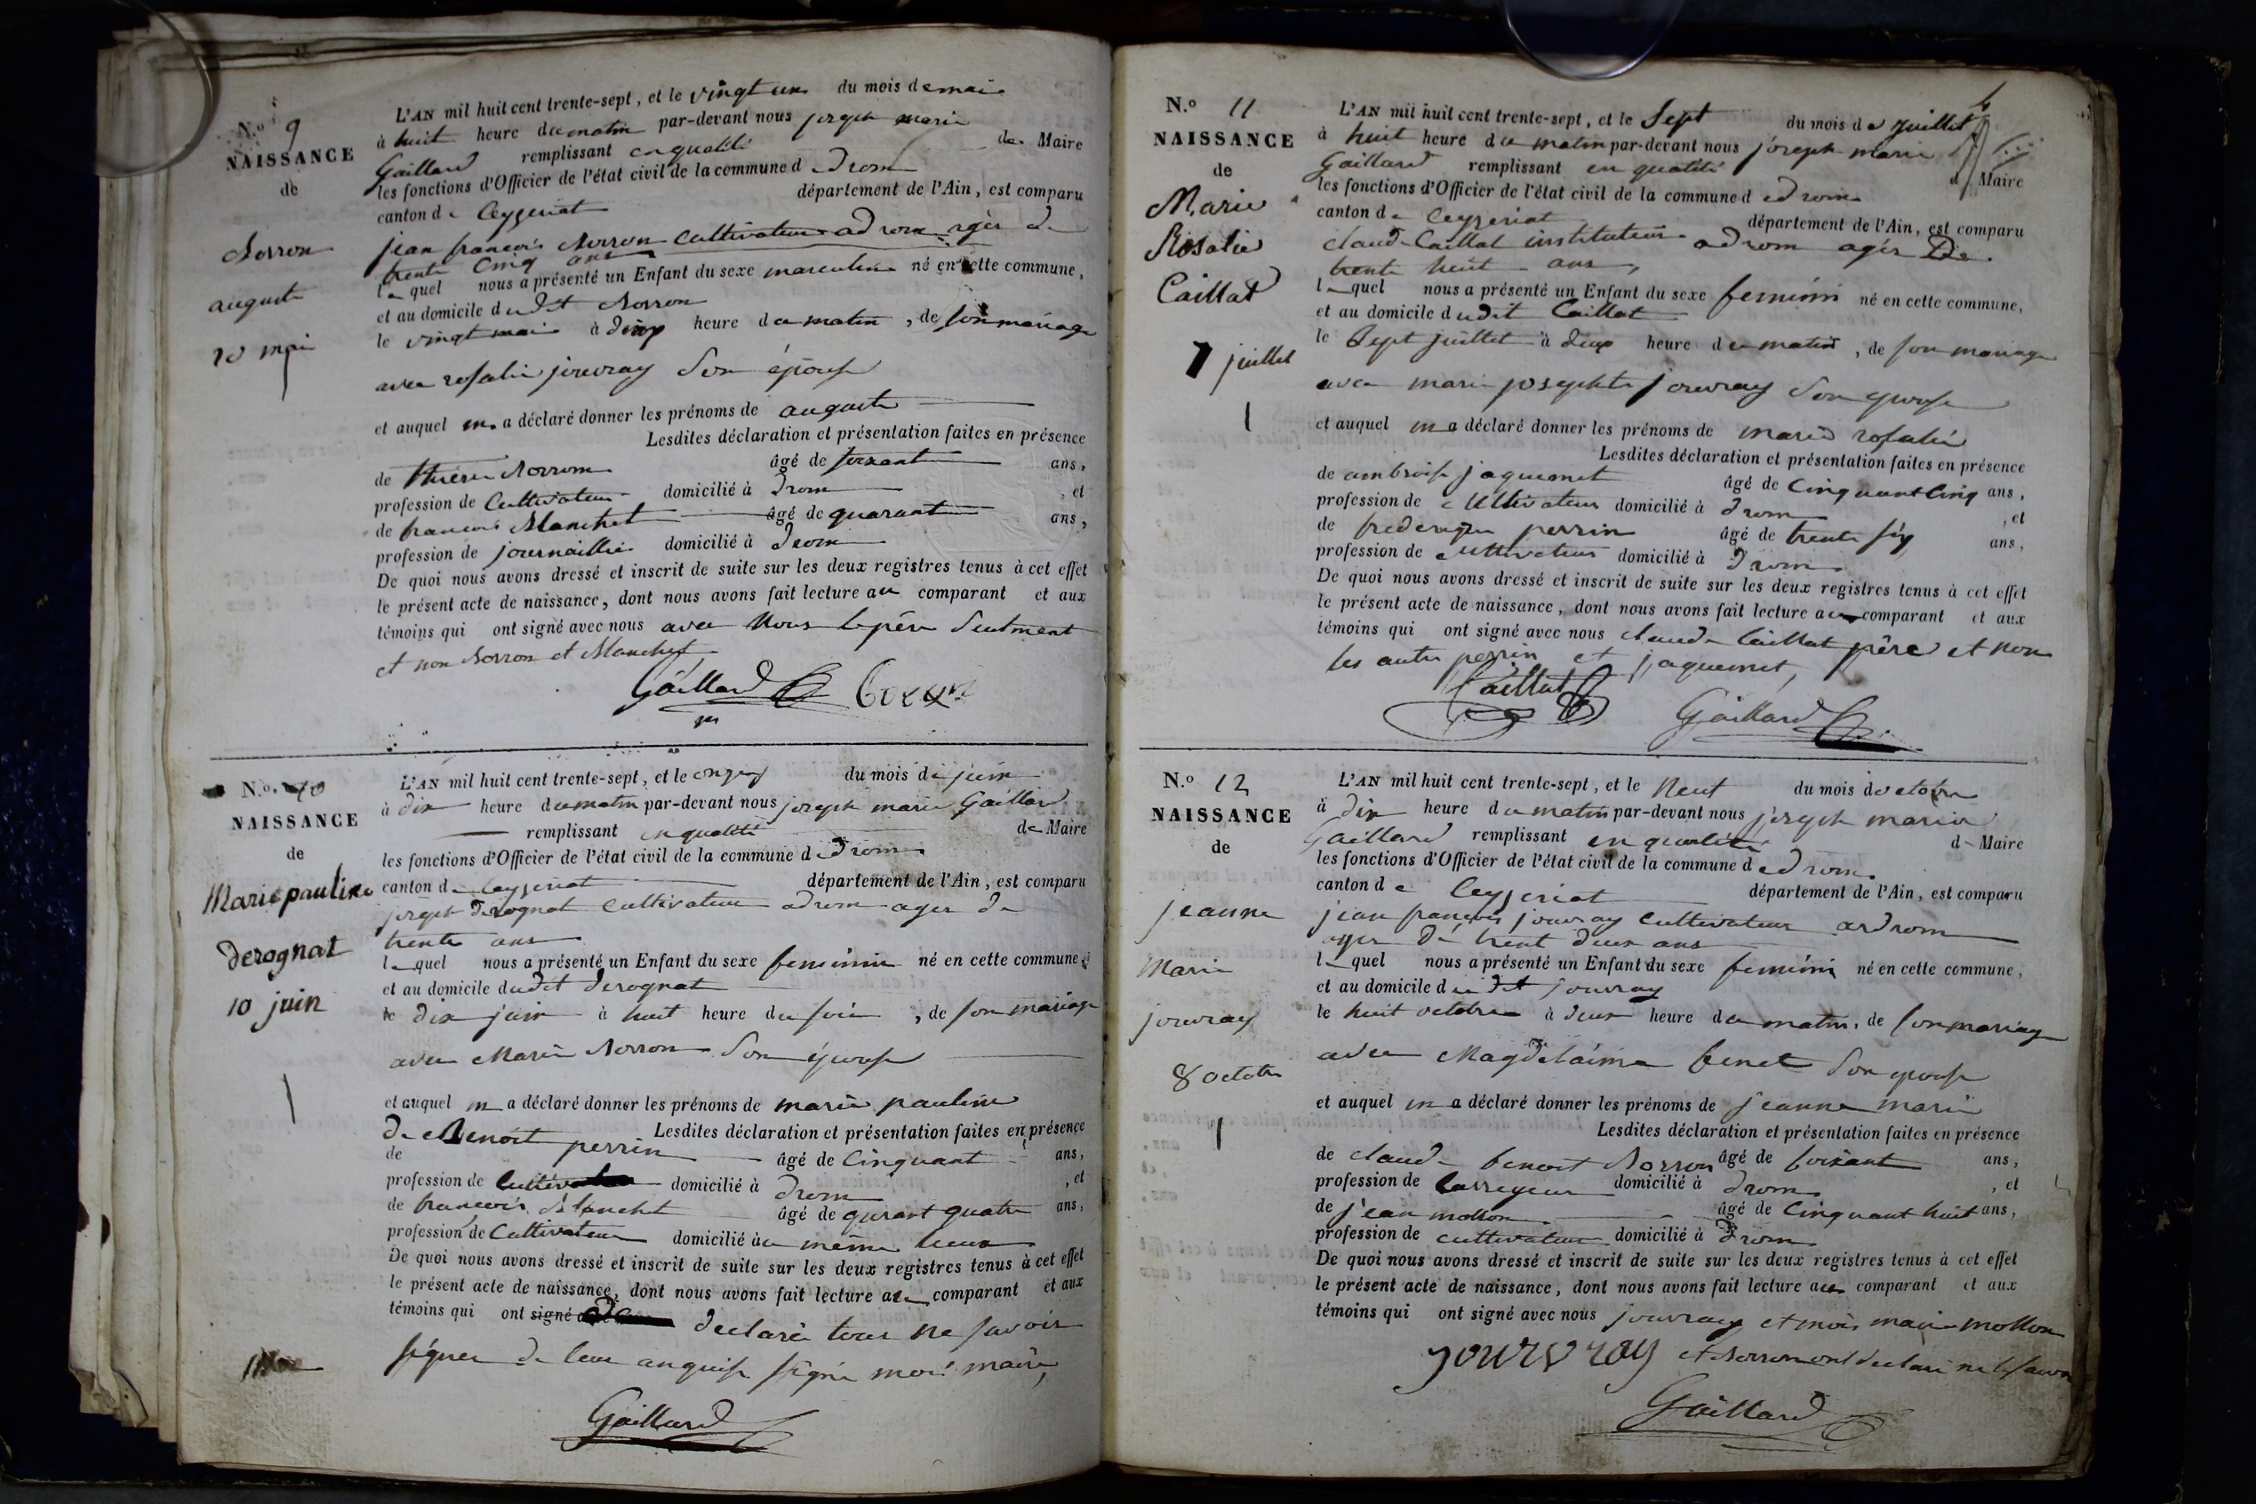 N.o 9
NAISSANCE
de
Borron
auguste
20 mai
L'AN mil huit cent trente-sept, et le vingt un du mois de mai
à huit heure du matin par-devant nous joseph marie
Gaillard remplissant en qualité de Maire
les fonctions d'Officier de l'état civil de la commune d e drom
canton de Ceyzeriat département de l'Ain, est comparu
jean françois Borron cultivateur a drom agér de
trente cinq ans
lequel nous a présenté un Enfant du sexe masculin né en cette commune,
et au domicile dudit Borron
le vingt mai à deux heure du matin, de son mariage
avec rosalie jouvray son épouse
et auquel en a déclaré donner les prénoms de auguste
Lesdites déclaration et présentation faites en présence
de Borron âgé de soixante ans,
profession de Cultivateur domicilié à drom, et
de francois Blanchet âgé de quarante ans,
profession de journaillier domicilié à drom
De quoi nous avons dressé et inscrit de suite sur les deux registres tenus à cet effet
le présent acte de naissance, dont nous avons fait lecture au comparant et aux
témoins qui ont signé avec nous avec Nous le père seulment
et non Borron et Blanchet
Gaillard Boron
N.o 10
NAISSANCE
de
Marie pauline
derognat
10 juin
L'AN mil huit cent trente-sept, et le onze du mois de juin
à dix heure du matin par-devant nous joseph marie Gaillard
remplissant en qualité de Maire
les fonctions d'Officier de l'état civil de la commune d e drom
canton de Ceyzeriat département de l'Ain, est comparu
joseph derognat cultivateur a drom ager de
trente ans
lequel nous a présenté un Enfant du sexe feminin né en cette commune,
et au domicile dudit derognat
le dix juin à huit heure du soir, de son mariage
avec Marie Borron son épouse
et auquel en a déclaré donner les prénoms de marie pauline
Lesdites déclaration et présentation faites en présence
de Benoit perrin
de âgé de Cinquant ans,
profession de domicilié à drom, et
de francois Blanchet âgé de qurant quatre ans,
profession de Cultivateur domicilié au même lieux
De quoi nous avons dressé et inscrit de suite sur les deux registres tenus à cet effet
le présent acte de naissance, dont nous avons fait lecture au comparant et aux
témoins qui ont signé declaré tous ne savoir
signer de leur enquise signé moi maire,
Gaillard
N.o 11
NAISSANCE
de
Marie
Rosalie
Caillat
7 juillet
L'AN mil huit cent trente-sept, et le Sept du mois de juillet
à huit heure du matin par-devant nous joseph marie
Gaillard remplissant en qualité d Maire
les fonctions d'Officier de l'état civil de la commune d e drom
canton de Ceyzeriat département de l'Ain, est comparu
claude Caillat instituteur a drom agér De
trente huit ans,
lequel nous a présenté un Enfant du sexe feminin né en cette commune,
et au domicile dudit Caillat
le Sept juillet à deux heure du matin, de son mariage
avec marie josephte jouvray son epouse
et auquel en a déclaré donner les prénoms de marie rosalie
Lesdites déclaration et présentation faites en présence
de ambroise jaquemet âgé de Cinquant Cinq ans,
profession de cultivateur domicilié à drom, et
de frederique perrin âgé de trente six ans,
profession de cultivateur domicilié à drom
De quoi nous avons dressé et inscrit de suite sur les deux registres tenus à cet effet
le présent acte de naissance, dont nous avons fait lecture au comparant et aux
témoins qui ont signé avec nous claude Caillat père et non
les autre perrin et jaquemet,
Caillat Gaillard
N.o 12
NAISSANCE
de
jeanne
Marie
jouvray
8 octobre
L'AN mil huit cent trente-sept, et le Neuf du mois doctobre
à dix heure du matin par-devant nous joseph marie
Gaillard remplissant en qualité d Maire
les fonctions d'Officier de l'état civil de la commune d e drom
canton de Ceyzeriat département de l'Ain, est comparu
jean françois jouvray cultivateur a drom
ager de trent deux ans
lequel nous a présenté un Enfant du sexe feminin né en cette commune,
et au domicile du dit jouvray
le huit octobre à deux heure du matin, de son mariag
avec Magdelaine benet son epouse
et auquel en a déclaré donner les prénoms de jeanne marie
Lesdites déclaration et présentation faites en présence
de claude benoit Borron âgé de soixant ans,
profession de domicilié à drom, et
de jean mollon âgé de Cinquant huit ans,
profession de cultivateur domicilié à drom
De quoi nous avons dressé et inscrit de suite sur les deux registres tenus à cet effet
le présent acte de naissance, dont nous avons fait lecture au comparant et aux
témoins qui ont signé avec nous jouvray et moi maire mollon
jouvray et Borron ont declaré ne le savoir
Gaillard